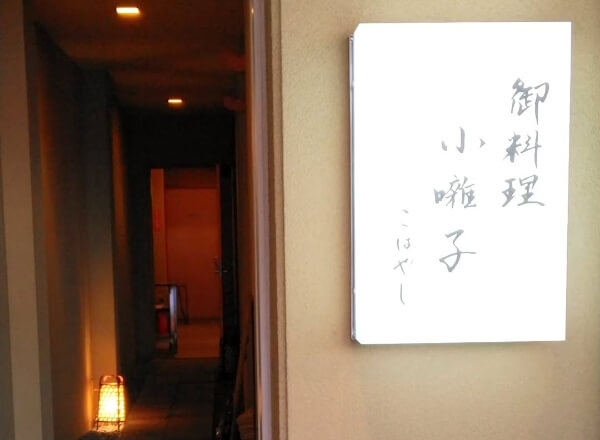 御料理
小囃子
こはやし